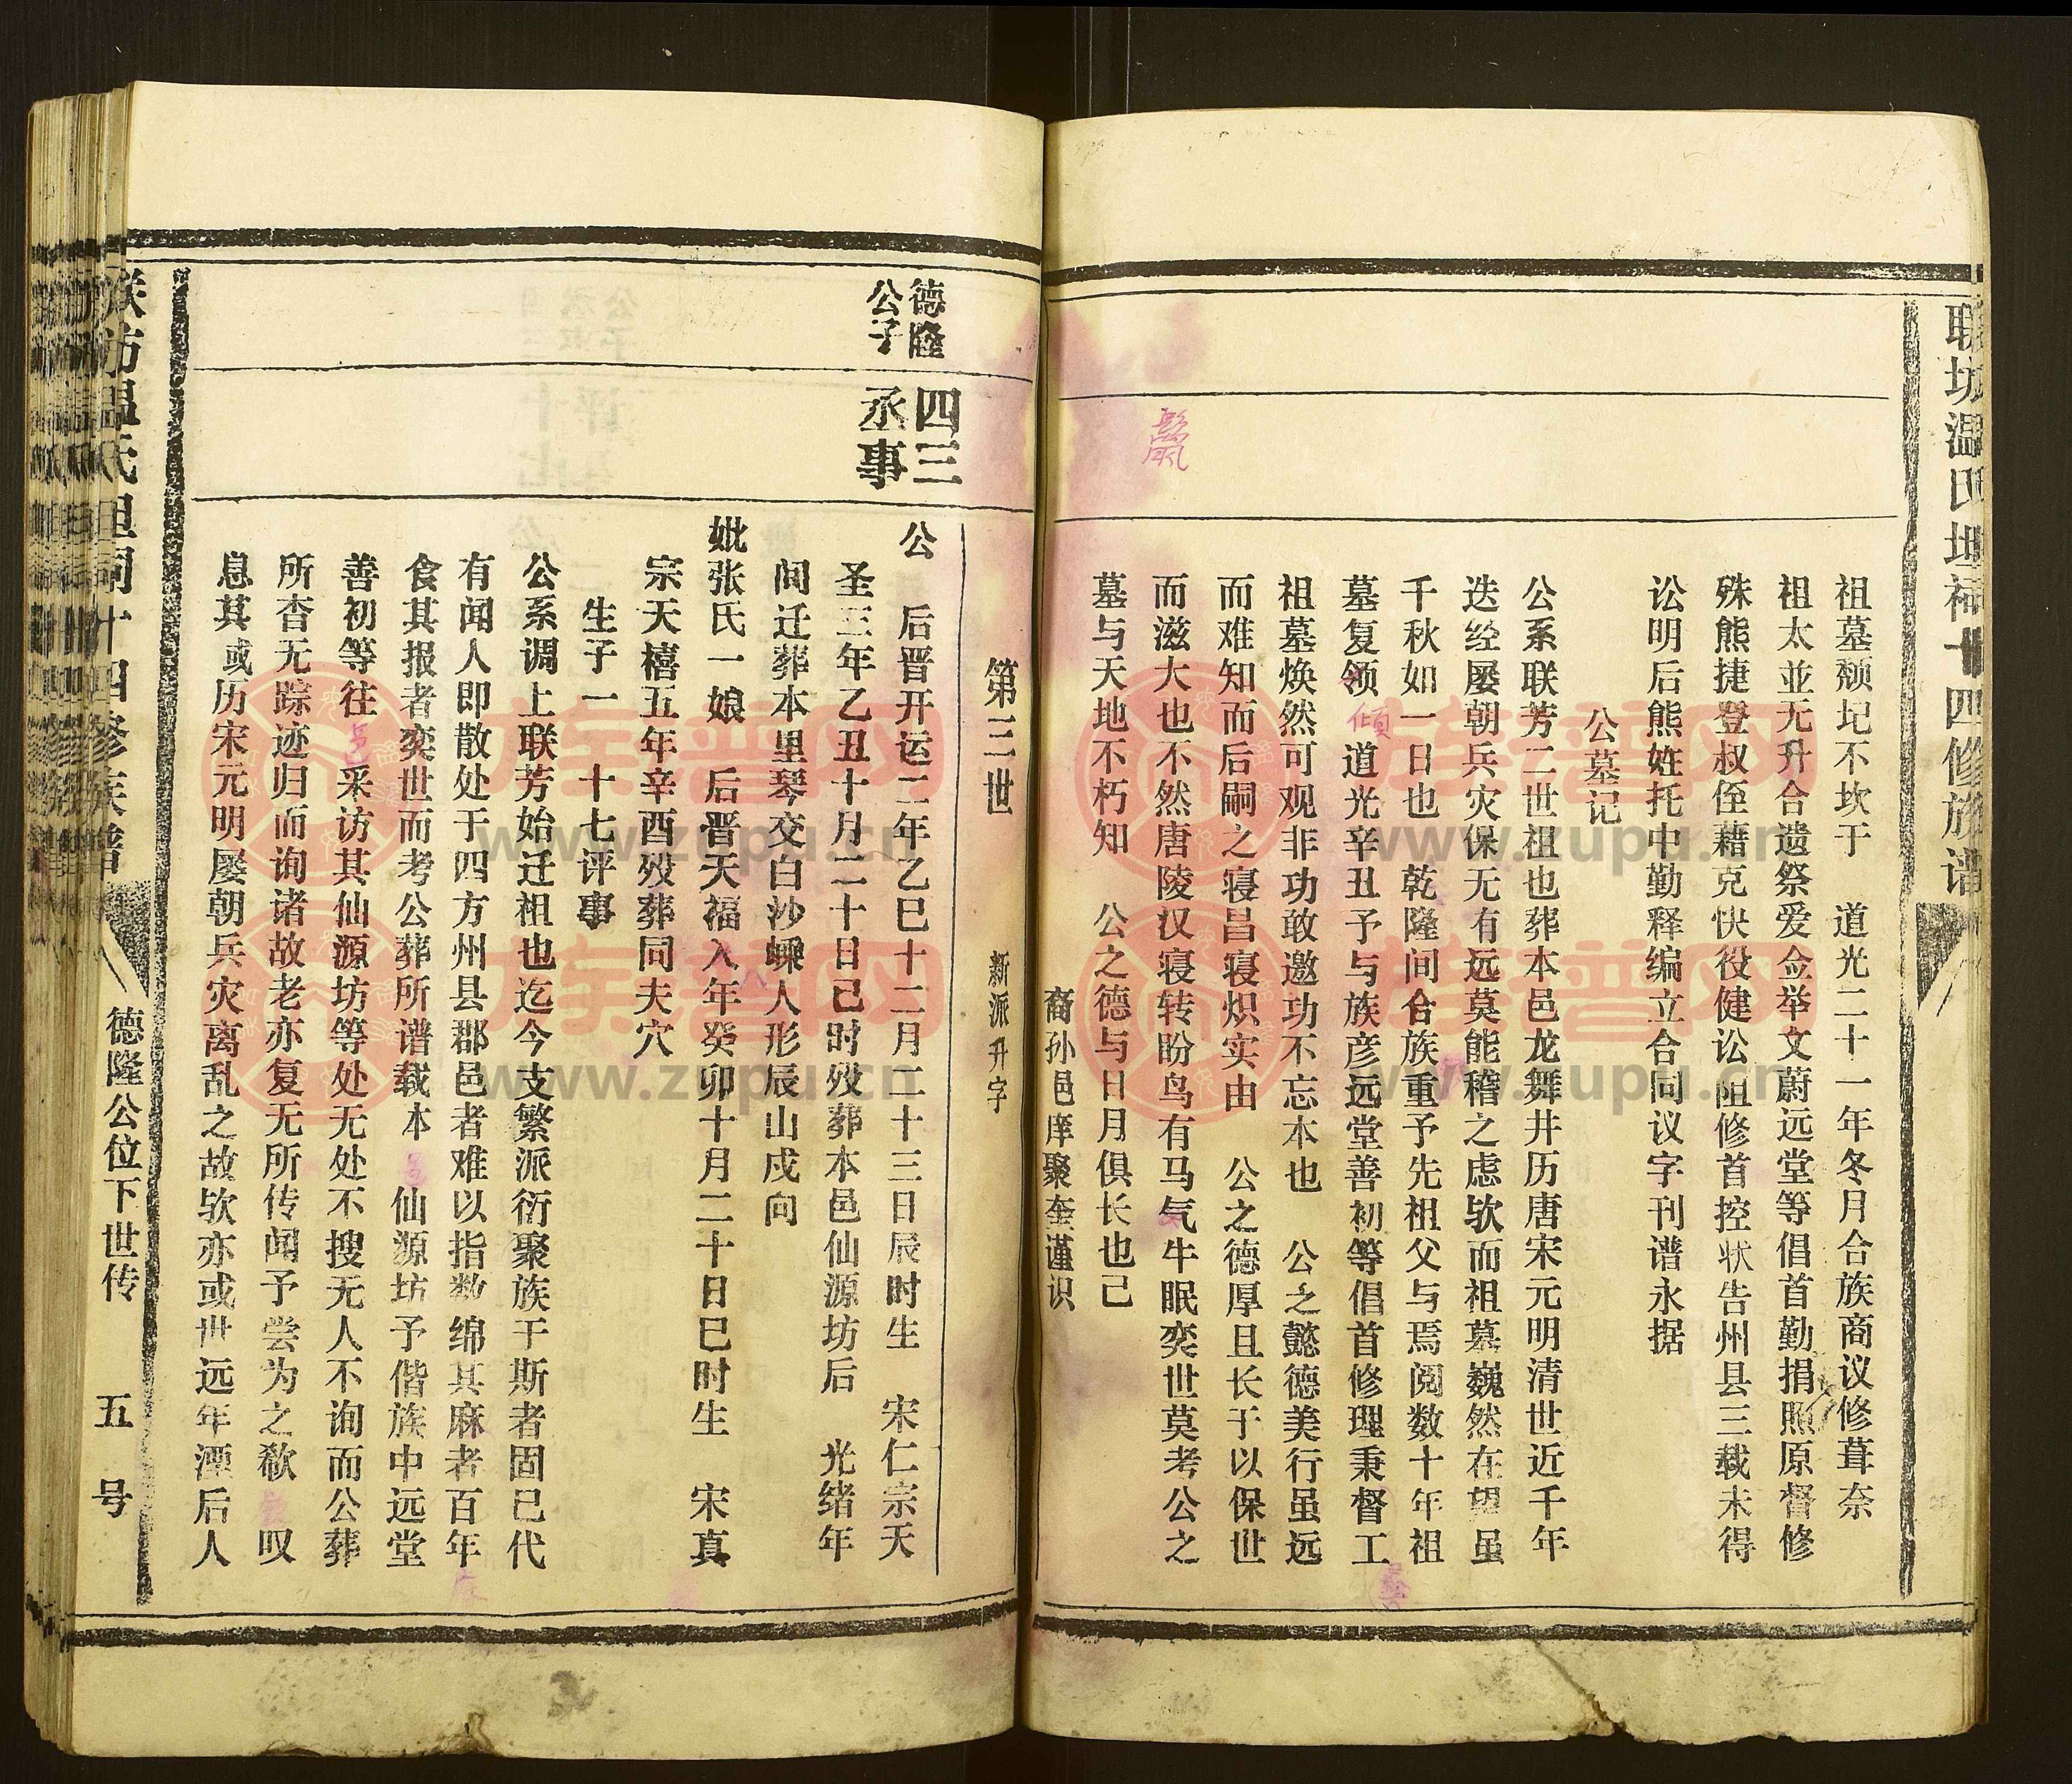 联坊温氏坦祠十四修族谱
祖墓颓圮不坎于　道光二十一年冬月合族商议修葺奈
祖太並无升合遗祭爱佥举文蔚远堂等倡首勤捐照原督修
殊熊捷登叔侄藉克快役健讼阻修首控状告州县三载未得
讼明后熊姓托中勤释编立合同议字刊谱永据
公墓记
公系联芳二世祖也葬本邑龙舞井历唐宋元明清世近千年
迭经屡朝兵灾保无有远莫能稽之虑欤而祖墓巍然在望虽
千秋如一日也　乾隆间合族重予先祖父与焉阅数十年祖
墓复领倾道光辛丑予与族彦远堂善初等倡首修理秉督工
祖墓焕然可观非功敢邀功不忘本也　公之懿德美行虽远
而难知而后嗣之寝昌寝炽实由　公之德厚且长于以保世
而滋大也不然唐陵汉寝转盼鸟有马气牛眠奕世莫考公之
墓与天地不朽知　公之德与日月俱长也已
裔孙邑庠聚奎谨识
第三世　新派升字
德隆
公子
四三
丞事
公　后晋开运二年乙巳十二月二十三日辰时生　宋仁宗天
圣三年乙丑十月二十日己时殁葬本邑仙源坊后　光绪年
间迁葬本里琴交白沙嵊人形辰山戌向
妣张氏一娘　后晋天福入年癸卯十月二十日巳时生　宋真
宗天禧五年辛酉殁葬同夫穴
生子一　十七评事
公系调上联芳始迁祖也迄今支繁派衍聚族于斯者固已代
有闻人即散处于四方州县郡邑者难以指数绵其麻者百年
食其报者奕世而考公葬所谱载本邑仙源坊予偕族中远堂
善初等往邑采访其仙源坊等处无处不搜无人不询而公葬
所杳无踪迹归而询诸故老亦复无所传闻予尝为之欷叹
息其或历宋元明屡朝兵灾离乱之故欤亦或世远年湮后人
联芳温氏坦祠十四修族谱
德隆公位下世传　五号